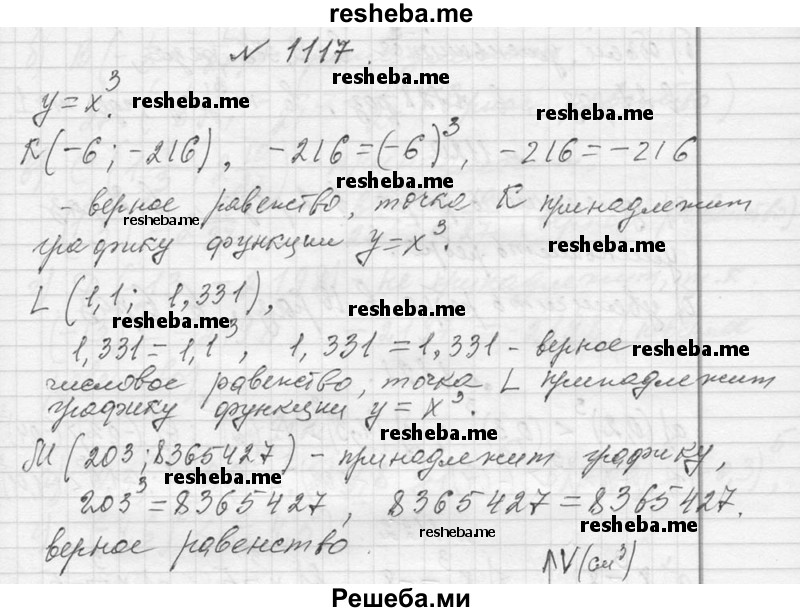 resheba.me
№ 1117.
y = x³. resheba.me
resheba.me
K(-6; -216), -216 = (-6)³, -216 = -216
resheba.me
- верное равенство, точка K принадлежит
resheba.me
графику функции y = x³. resheba.me
L (1,1; 1,331), resheba.me
resheba.me
1,331 = 1,1³, 1,331 = 1,331 - верное resheba.me
числовое равенство, точка L принадлежит
графику функции y = x³.
resheba.me
M (203; 8365427) - принадлежит графику,
resheba.me
203³ = 8365427, 8365427 = 8365427.
resheba.me resheba.me
верное равенство.
V(см³)
Решеба.ми